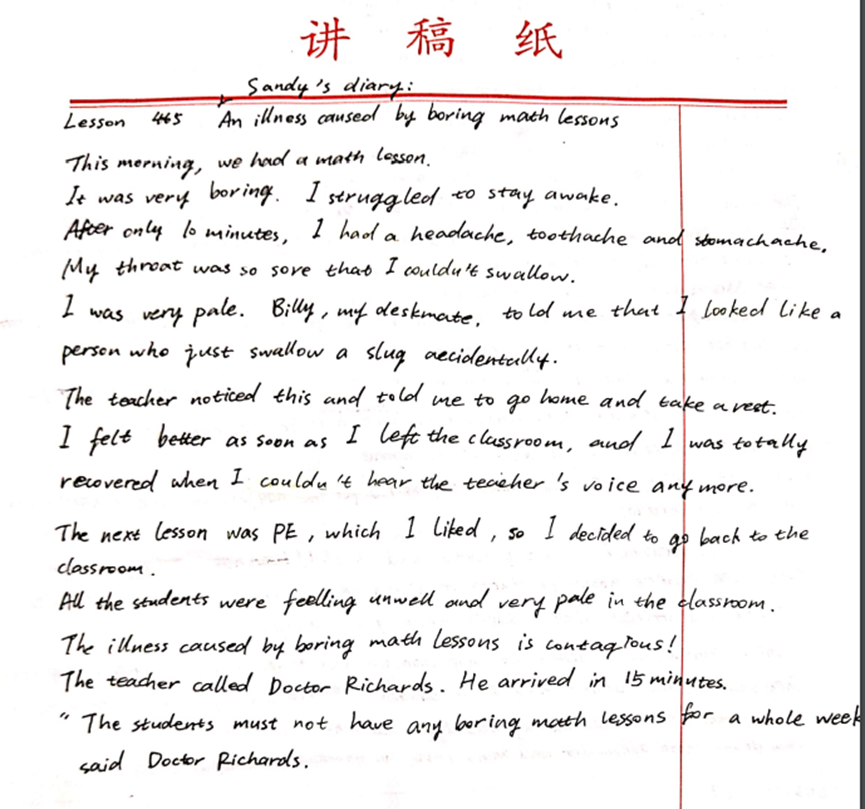 讲 稿 纸
Sandy's diary:
Lesson 465 An illness caused by boring math lessons
This morning, we had a math lesson.
It was very boring. I struggled to stay awake.
After only 10 minutes, I had a headache, toothache and stomachache.
My throat was so sore that I couldn't swallow.
I was very pale. Billy, my deskmate, told me that I looked like a
person who just swallow a slug accidentally.
The teacher noticed this and told me to go home and take a rest.
I felt better as soon as I left the classroom, and I was totally
recovered when I couldn't hear the teacher's voice anymore.
The next lesson was PE, which I liked, so I decided to go back to the
classroom.
All the students were feelling unwell and very pale in the classroom.
The illness caused by boring math lessons is contagious!
The teacher called Doctor Richards. He arrived in 15 minutes.
"The students must not have any boring math lessons for a whole week
said Doctor Richards.